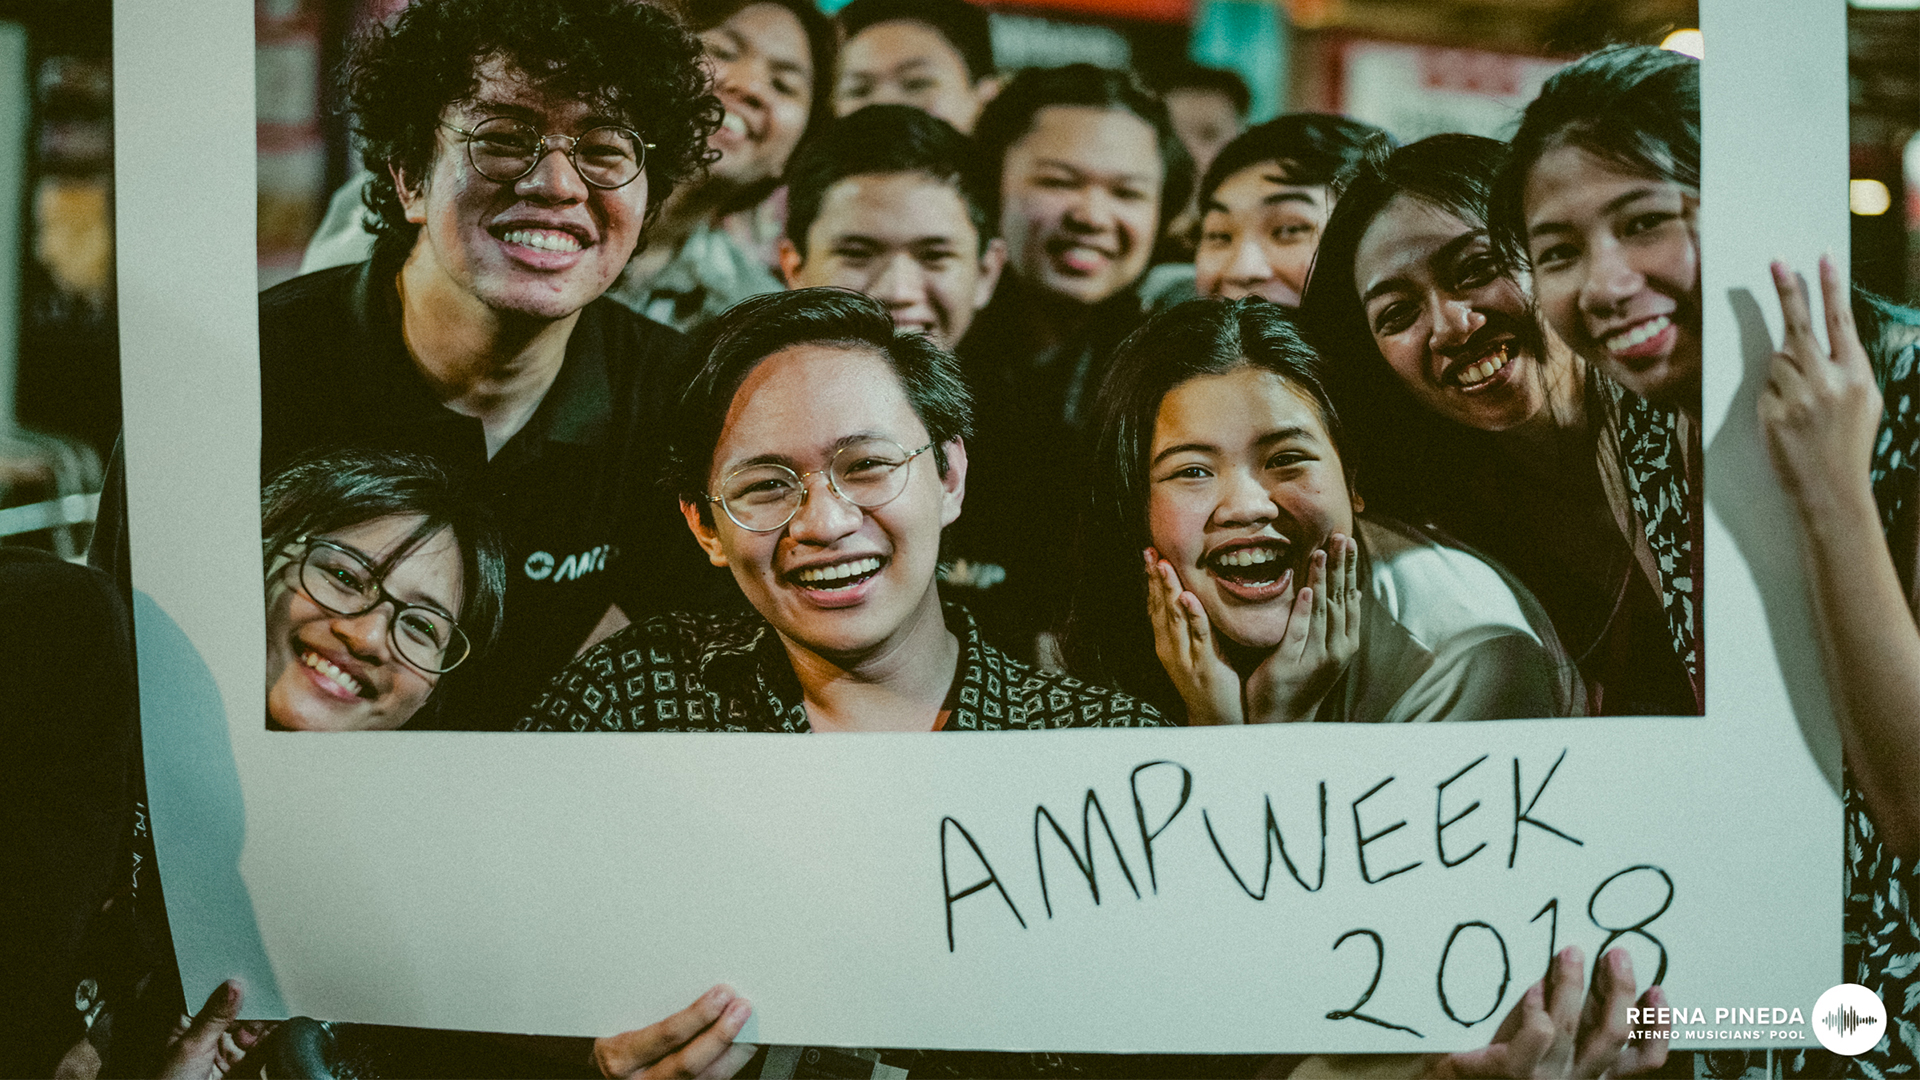 AMP
AMPWEEK
2018
REENA PINEDA
ATENEO MUSICIANS' POOL